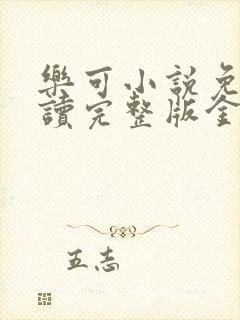 樂可小說免
讀完整版全
五志